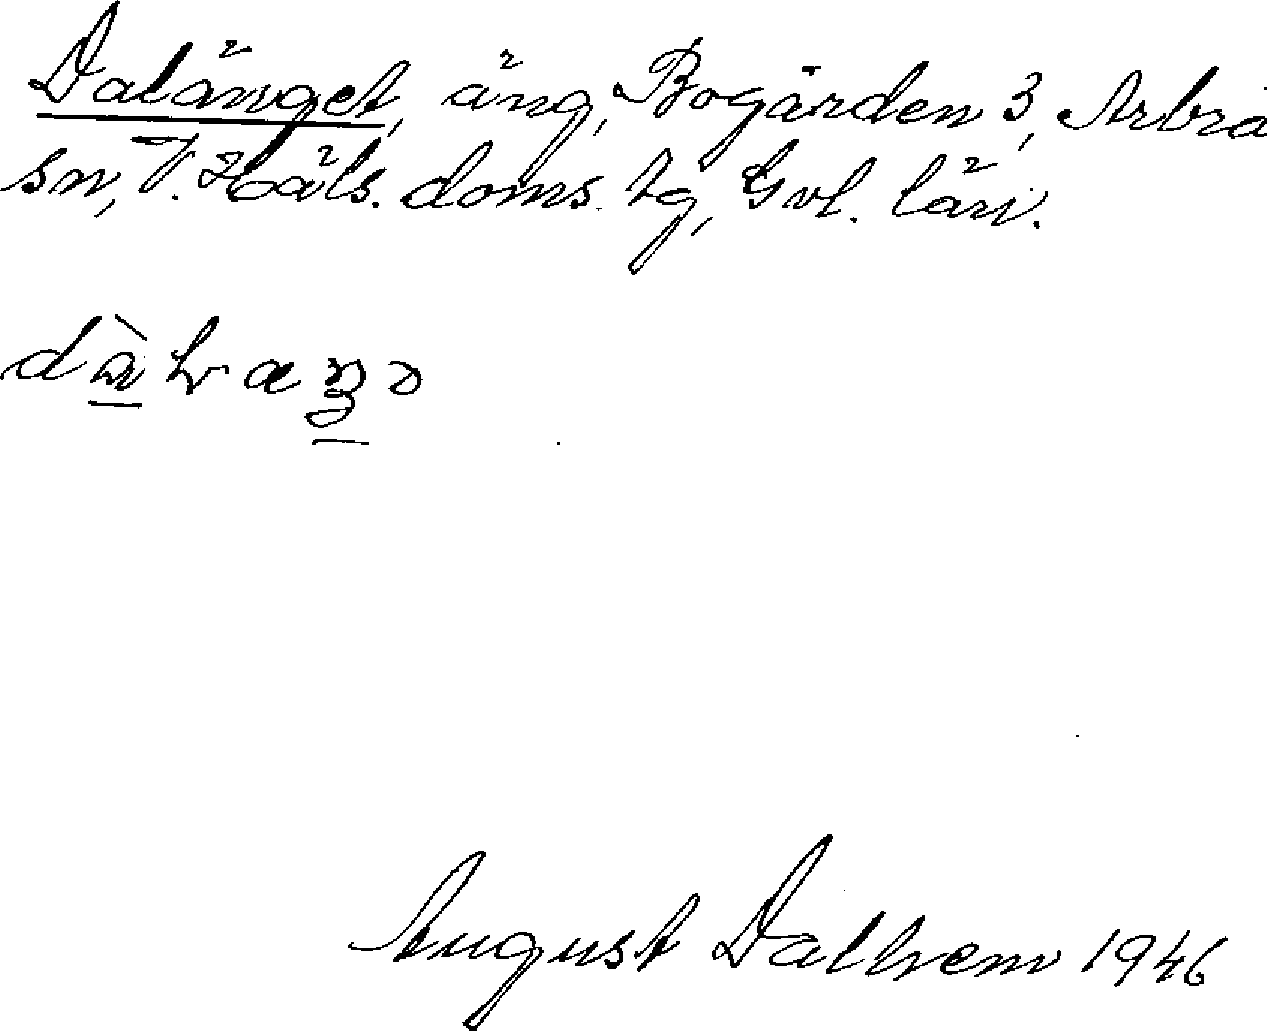 Dalänget, äng, Bogården 3, Arbrå
sn, V. Häls. doms. tg, Gvl. län.
August Dalhem 1946